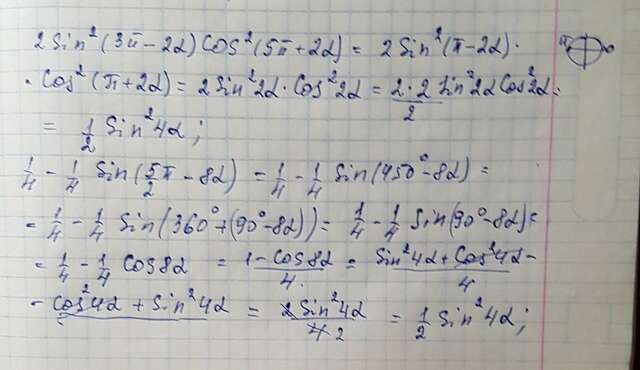 2 Sin²(3π − 2α) Cos²(5π + 2α) = 2 Sin²(π − 2α) ·
· Cos²(π + 2α) = 2 Sin² 2α · Cos² 2α = (2·2 Sin² 2α Cos² 2α)/2 =
= 1/2 Sin² 4α ;
1/4 − 1/4 Sin(5π/2 − 8α) = 1/4 − 1/4 Sin(450° − 8α) =
= 1/4 − 1/4 Sin(360° + (90° − 8α)) = 1/4 − 1/4 Sin(90° − 8α) =
= 1/4 − 1/4 Cos 8α = (1 − Cos 8α)/4 = (Sin² 4α + Cos² 4α −
− Cos² 4α + Sin² 4α)/4 = 2 Sin² 4α/4 2 = 1/2 Sin² 4α ;